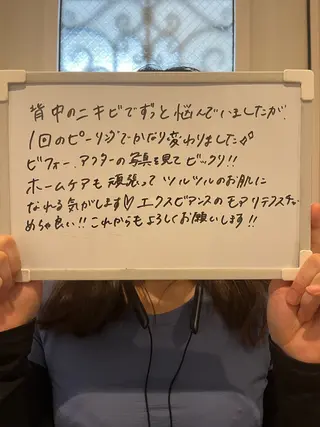 背中のニキビでずっと悩んでいましたが、
1回のピーリングでかなり変わりました!!
ビフォー、アフターの写真を見てビックリ!!
ホームケアも頑張ってツルツルのお肌に
なれる気がします♡エクスビアンスのモアリテフスチュ
めちゃ良い!!これからもよろしくお願いします!!